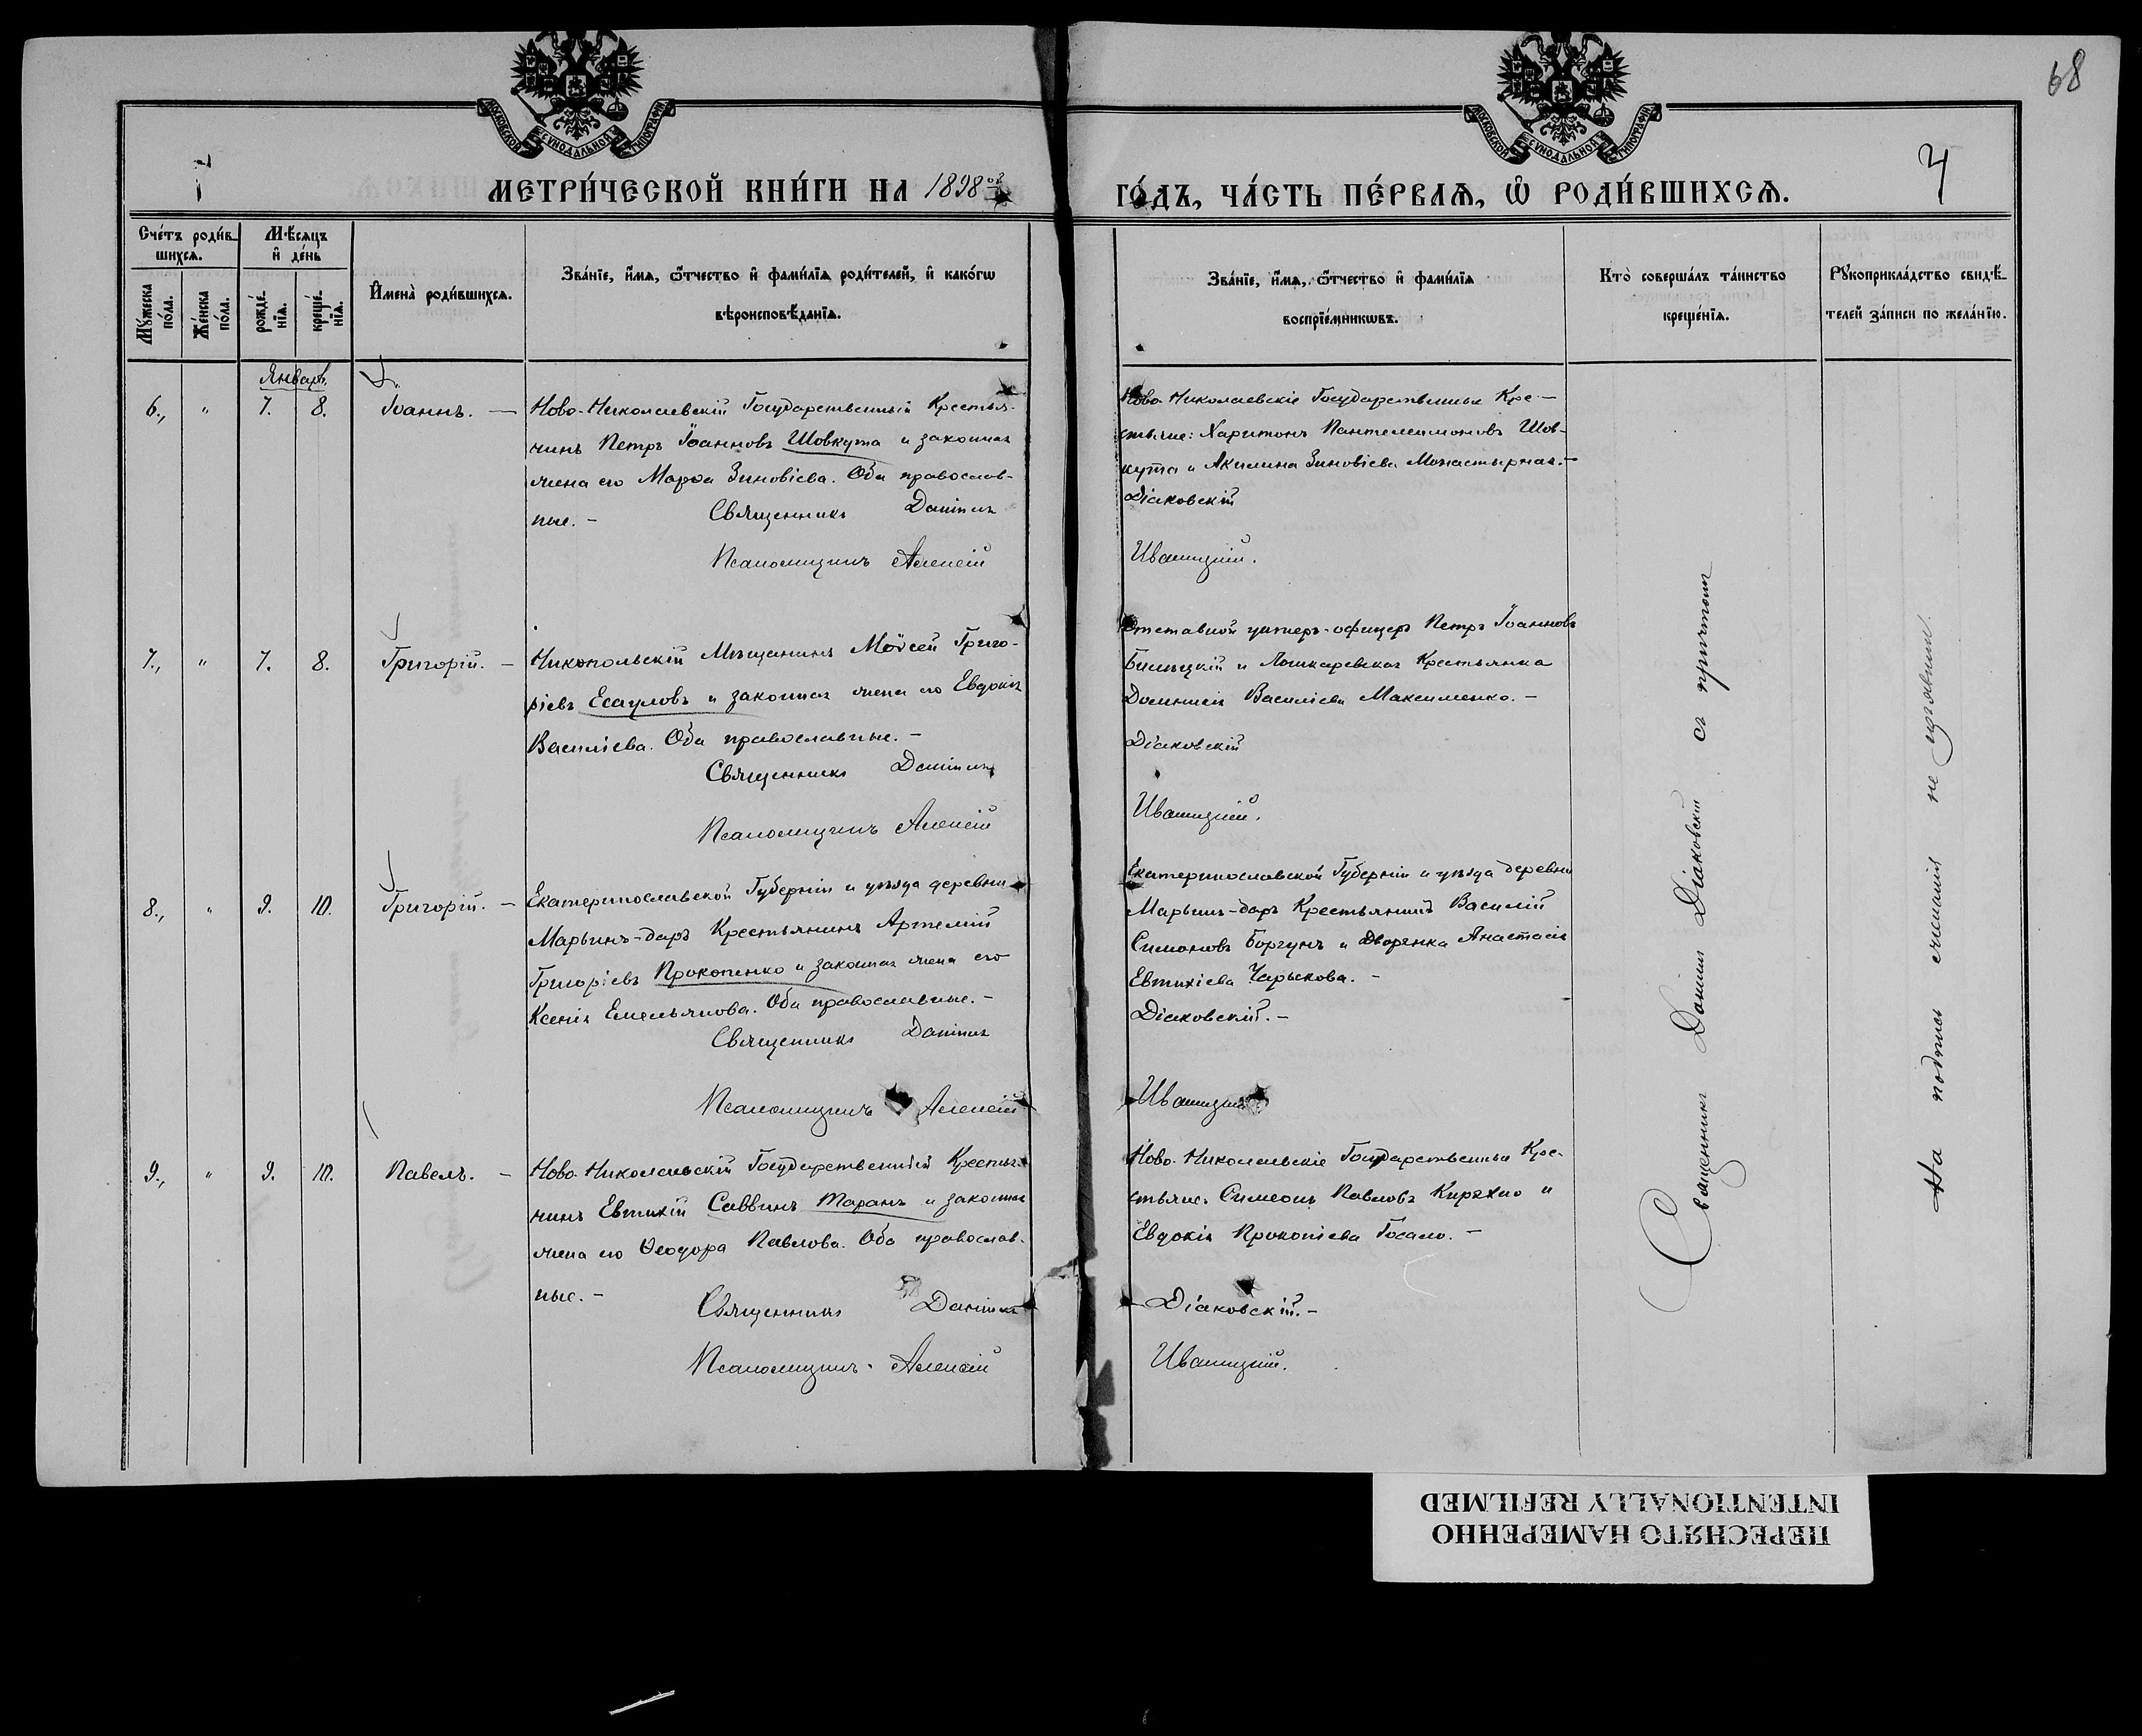 68
МОСКОВСКОЙ СѴНОДАЛЬНОЙ ТИПОГРАФІИ
МОСКОВСКОЙ СѴНОДАЛЬНОЙ ТИПОГРАФІИ
4
МЕТРИ́ЧЕСКОЙ КНИ́ГИ НА 1898ой
ГО́ДЪ, ЧА́СТЬ ПЕ́РВАѦ, Ѽ РОДИ́ВШИХСѦ.
Сче́тъ роди́в-
шихсѧ.
Мѣ́сяцъ
и҆ де́нь
Мꙋ́жеска
по́ла.
Же́нска
по́ла.
рожде́-
нїѧ.
креще́-
нїѧ.
И҆мена̀ роди́вшихсѧ.
Зва́нїе, и҆́мѧ, ѻ҆́тчество и҆ фами́лїѧ роди́телей, и҆ како́гѡ
вѣроисповѣ́данїѧ.
Зва́нїе, и҆́мѧ, ѻ҆́тчество и҆ фами́лїѧ
воспрїе́мникѡвъ.
Кто̀ соверша́лъ та́инство
креще́нїѧ.
Рꙋкоприкла́дство свидѣ́-
телей за́писи по жела́нїю.
Январь.
6., " 7. 8. Іоаннъ. —
Ново-Николаевскій Государственный Крестья-
нинъ Петръ Іоанновъ Шовкута и законная
жена его Марѳа Зиновіева. Оба православ-
ные. — Священникъ Даніилъ
Псаломщикъ Алексій
Ново-Николаевскіе Государственные Кре-
стьяне: Харитонъ Пантелеимоновъ Шов-
кута и Акилина Зиновіева Монастырная. —
Діаковскій
Иваницкій.
7., " 7. 8. Григорій. —
Никопольскій Мѣщанинъ Моѵсей Григо-
ріевъ Есауловъ и законная жена его Евдокія
Василіева. Оба православные. —
Священникъ Даніилъ
Псаломщикъ Алексій
Отставной унтеръ-офицеръ Петръ Іоанновъ
Билецкій и Лошкаревская Крестьянка
Домникія Василіева Максименко. —
Діаковскій
Иваницкій.
8., " 9. 10. Григорій. —
Екатеринославской Губерніи и уѣзда деревни
Марьинъ-даръ Крестьянинъ Артемій
Григоріевъ Прокопенко и законная жена его
Ксенія Емельянова. Оба православные. —
Священникъ Даніилъ
Псаломщикъ Алексій
Екатеринославской Губерніи и уѣзда деревни
Марьинъ-даръ Крестьянинъ Василій
Симоновъ Боргунъ и Дворянка Анастасія
Евтихіева Чарыкова. —
Діаковскій. —
Иваницкій
9., " 9. 10. Павелъ. —
Ново-Николаевскій Государственный Крестья-
нинъ Евтихій Саввинъ Таранъ и законная
жена его Ѳеодора Павлова. Оба православ-
ные. — Священникъ Даніилъ
Псаломщикъ Алексій
Ново-Николаевскіе Государственные Кре-
стьяне: Симеонъ Павловъ и
Евдокія Прокопіева —
Діаковскій. —
Иваницкій.
Священникъ Даніилъ Діаковскій съ причтомъ
На подпись желанія не изъявили.
ПЕРЕСНЯТО НАМЕРЕННО
INTENTIONALLY REFILMED